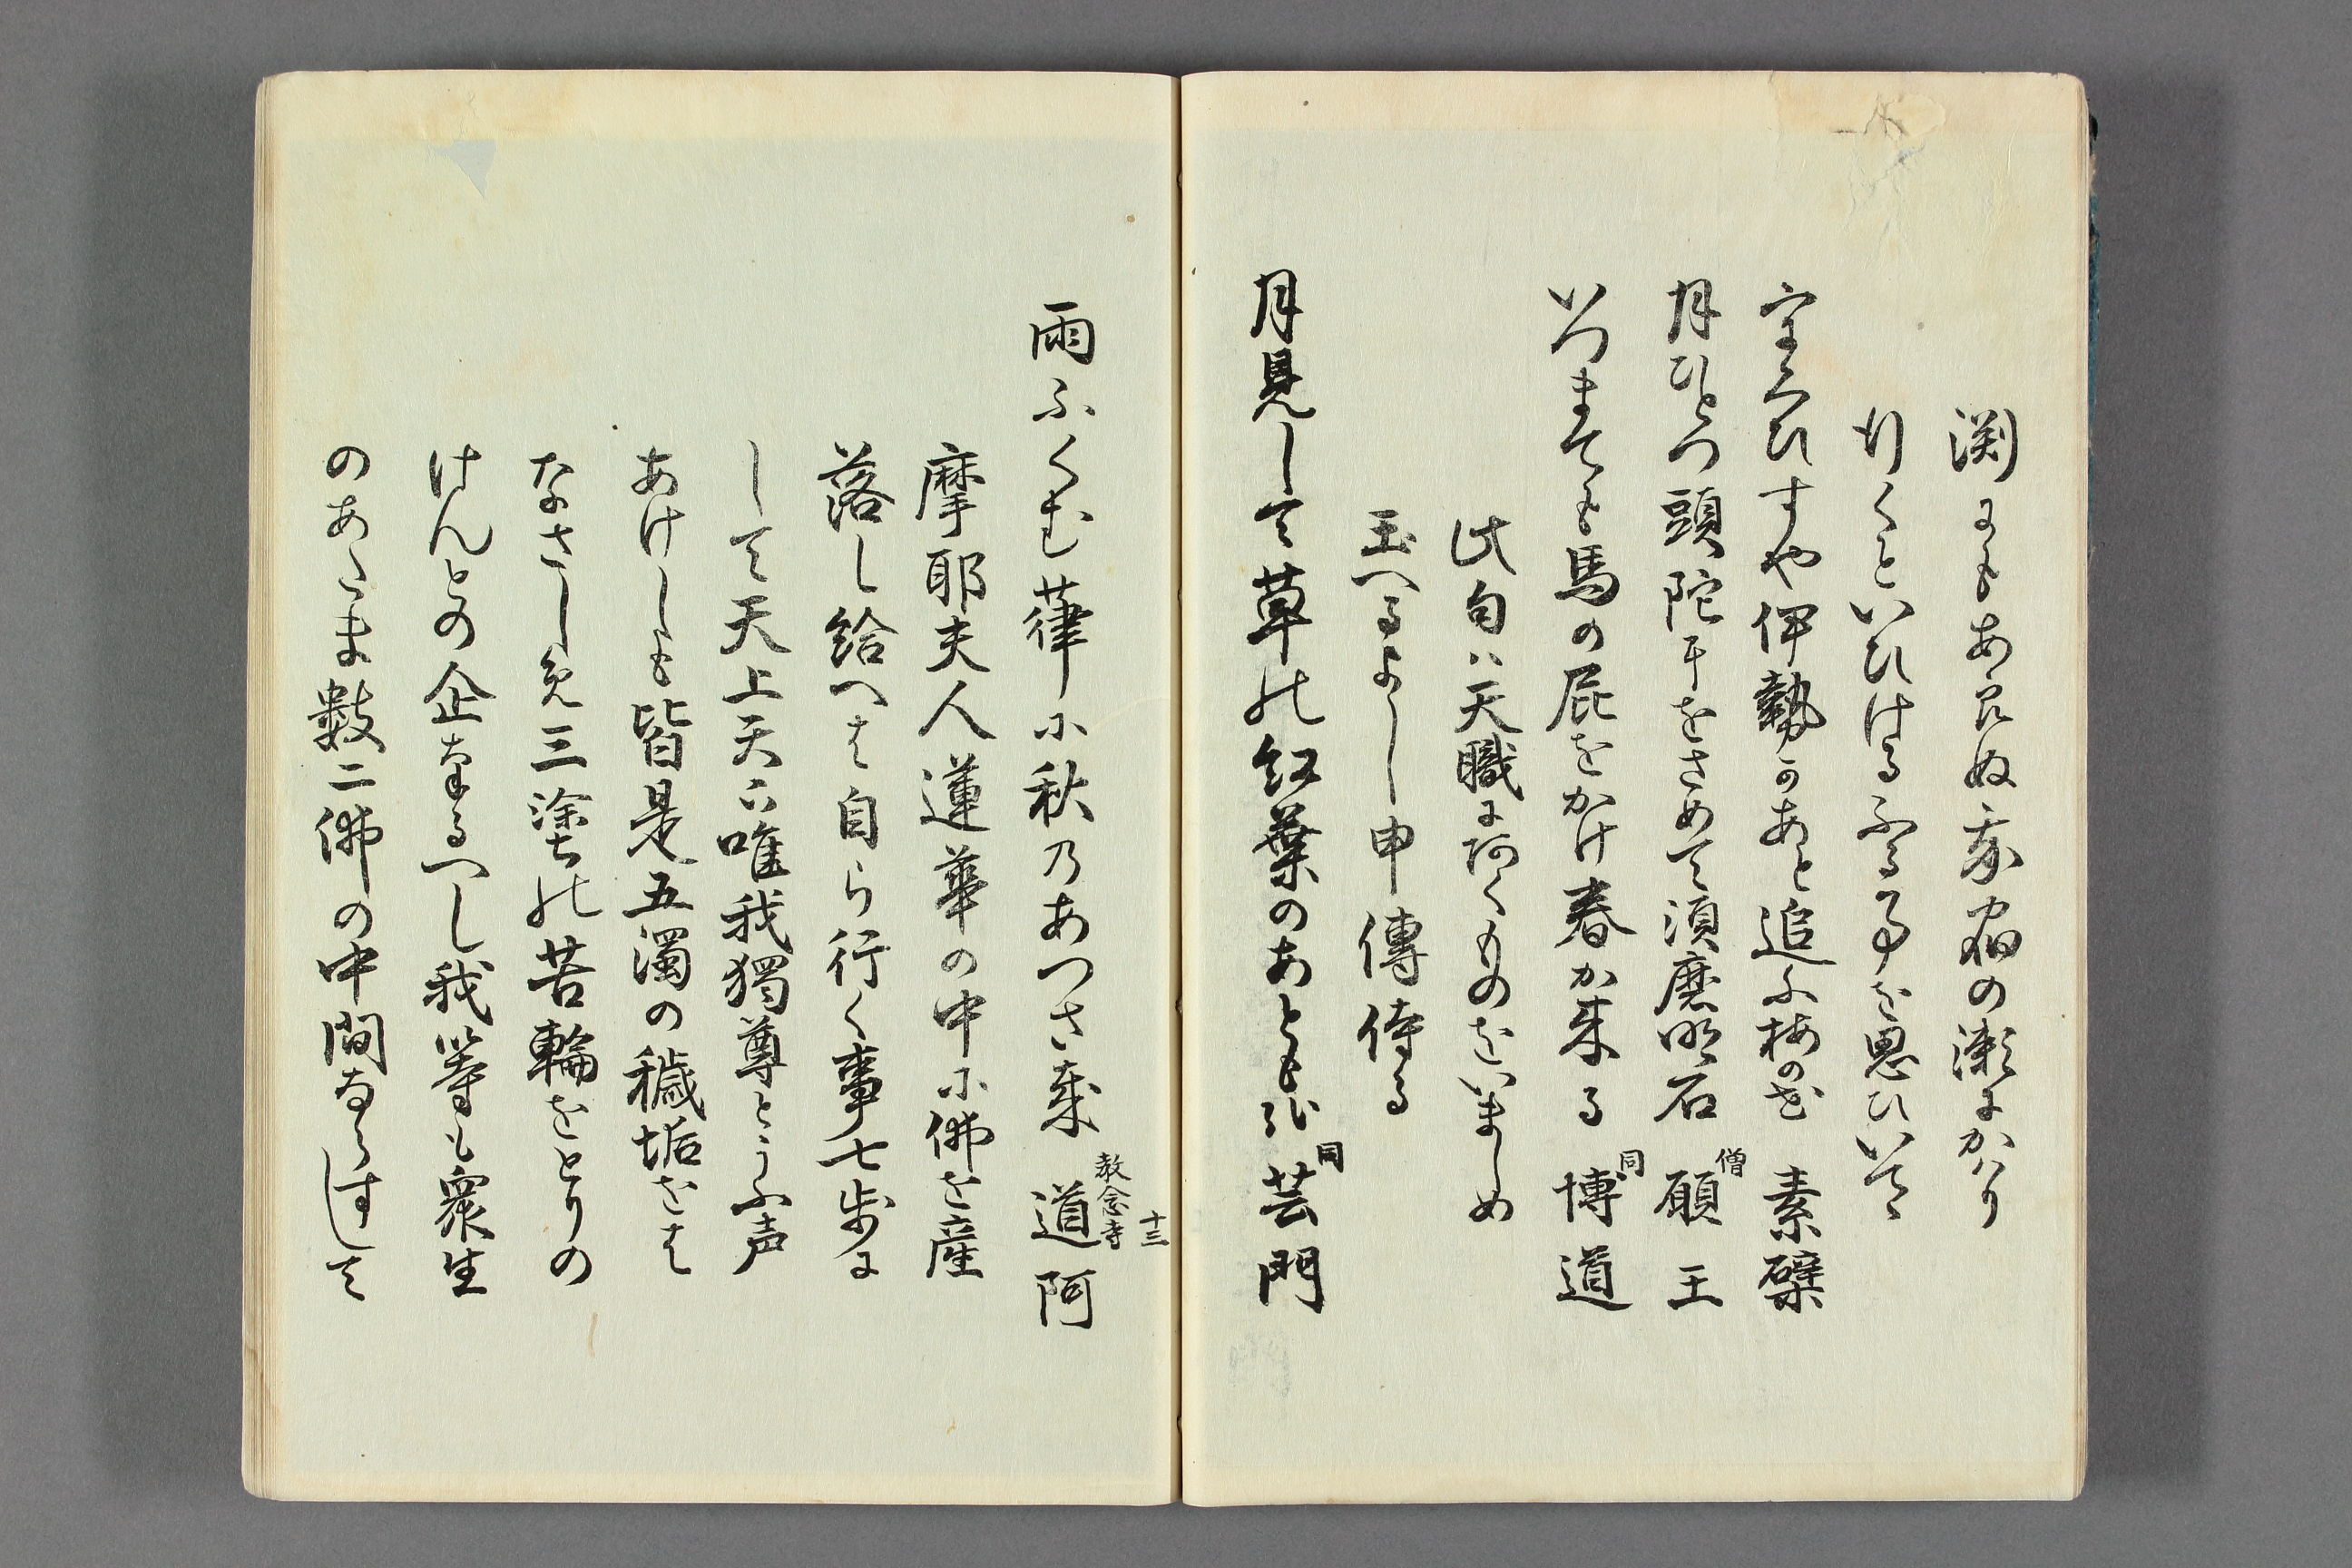 渕にもあらぬ我宿の瀬にかはり
行くといひけるふる事を思ひいてゝ
宝ひすや伊勢のあと追ふ梅の花　素檗
月ひとつ頭陀にをさめて須磨明石　僧 願王
いつまても馬の屁をかけ春か来る　同 博道
此句は天職に預くものをいましめ
玉へるよし申傳侍る
月見して草の紅葉のあともなし　同 芸門
十三
雨ふくむ葎に秋乃あつさ哉　教念寺 道阿
摩耶夫人蓮華の中に佛を産
落し給へは自ら行く事七歩に
して天上天下唯我獨尊とふ声
あけしも皆是五濁の穢垢をは
なさしめ三塗の苦輪をとりの
けんとの企なるへし我等も衆生
のあたま数二佛の中間ならすして